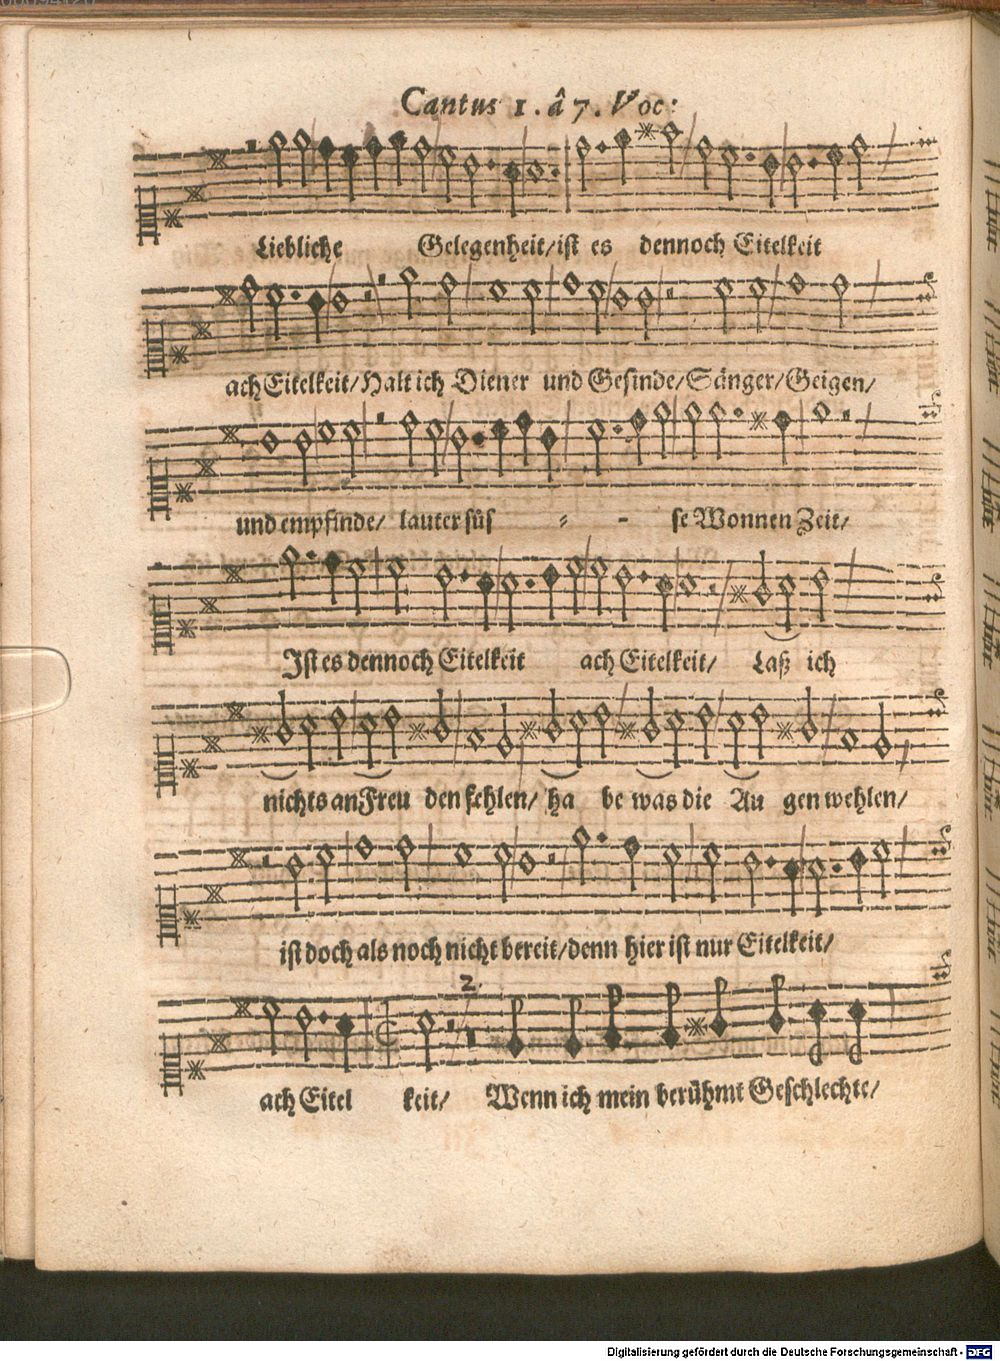 Cantus 1. â 7. Voc:
Liebliche Gelegenheit/ist es dennoch Eitelkeit
ach Eitelkeit/Halt ich Diener und Gesinde/Sänger/Geigen/
und empfinde/ lauter süs - - se Wonnen Zeit/
Ist es dennoch Eitelkeit ach Eitelkeit/ Laß ich
nichts an Freu den fehlen/ ha be was die Au gen wehlen/
ist doch als noch nicht bereit/denn hier ist nur Eitelkeit/
2.
ach Eitel keit/ Wenn ich mein berühmt Geschlechte/
Digitalisierung gefördert durch die Deutsche Forschungsgemeinschaft - DFG